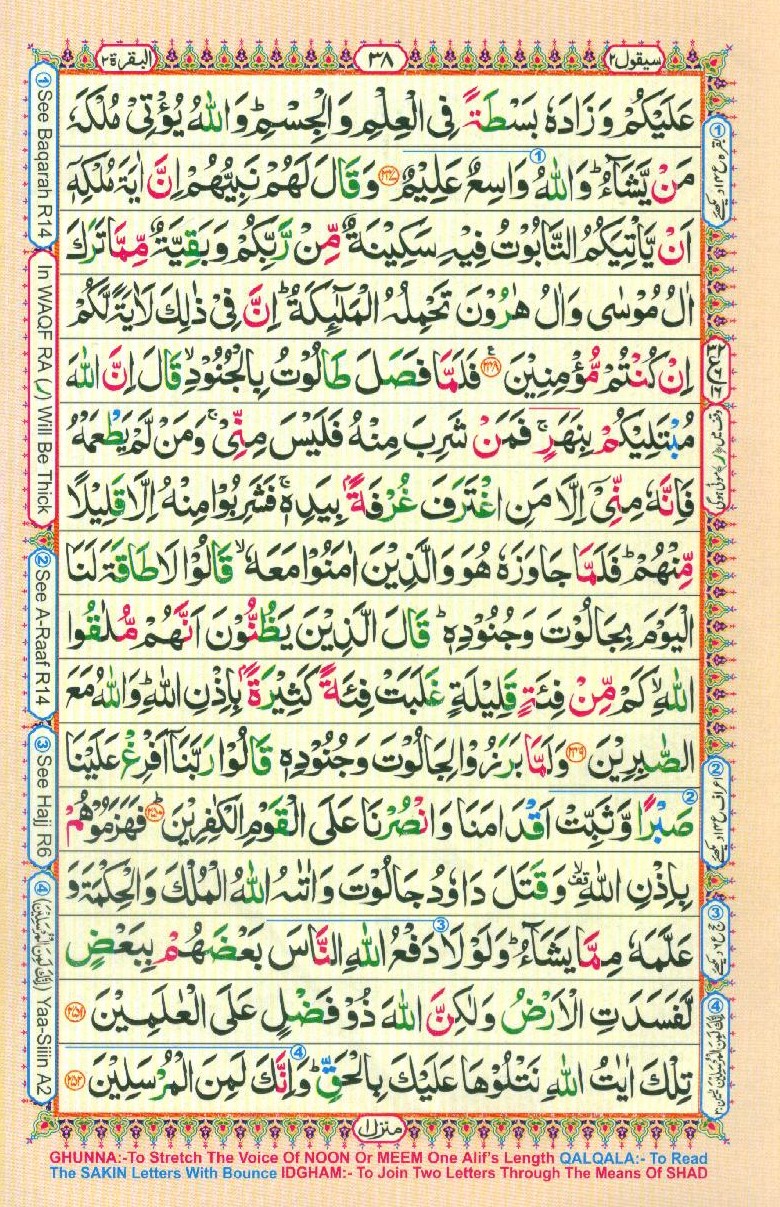 سيقول٢ ٣٨ البقرة٢
عَلَيْكُمْ وَزَادَهٗ بَسْطَةً فِى الْعِلْمِ وَالْجِسْمِ ؕ وَاللّٰهُ يُؤْتِىْ مُلْكَهٗ
مَنْ يَّشَآءُ ؕ وَاللّٰهُ وَاسِعٌ عَلِيْمٌ ﴿۲۴۷﴾ وَقَالَ لَهُمْ نَبِيُّهُمْ اِنَّ اٰيَةَ مُلْكِهٖۤ
اَنْ يَّاْتِيَكُمُ التَّابُوْتُ فِيْهِ سَكِيْنَةٌ مِّنْ رَّبِّكُمْ وَبَقِيَّةٌ مِّمَّا تَرَكَ
اٰلُ مُوْسٰى وَاٰلُ هٰرُوْنَ تَحْمِلُهُ الْمَلٰٓئِكَةُ ؕ اِنَّ فِىْ ذٰلِكَ لَاٰيَةً لَّكُمْ
اِنْ كُنْتُمْ مُّؤْمِنِيْنَ ﴿۲۴۸﴾ فَلَمَّا فَصَلَ طَالُوْتُ بِالْجُنُوْدِ ۙ قَالَ اِنَّ اللّٰهَ
مُبْتَلِيْكُمْ بِنَهَرٍ ۚ فَمَنْ شَرِبَ مِنْهُ فَلَيْسَ مِنِّىْ ۚ وَمَنْ لَّمْ يَطْعَمْهُ
فَاِنَّهٗ مِنِّىْۤ اِلَّا مَنِ اغْتَرَفَ غُرْفَةًۢ بِيَدِهٖ ۚ فَشَرِبُوْا مِنْهُ اِلَّا قَلِيْلًا
مِّنْهُمْ ؕ فَلَمَّا جَاوَزَهٗ هُوَ وَالَّذِيْنَ اٰمَنُوْا مَعَهٗ ۙ قَالُوْا لَا طَاقَةَ لَنَا
الْيَوْمَ بِجَالُوْتَ وَجُنُوْدِهٖ ؕ قَالَ الَّذِيْنَ يَظُنُّوْنَ اَنَّهُمْ مُّلٰقُوا
اللّٰهِ ۙ كَمْ مِّنْ فِئَةٍ قَلِيْلَةٍ غَلَبَتْ فِئَةً كَثِيْرَةًۢ بِاِذْنِ اللّٰهِ ؕ وَاللّٰهُ مَعَ
الصّٰبِرِيْنَ ﴿۲۴۹﴾ وَلَمَّا بَرَزُوْا لِجَالُوْتَ وَجُنُوْدِهٖ قَالُوْا رَبَّنَاۤ اَفْرِغْ عَلَيْنَا
صَبْرًا وَّثَبِّتْ اَقْدَامَنَا وَانْصُرْنَا عَلَى الْقَوْمِ الْكٰفِرِيْنَ ﴿۲۵۰﴾ فَهَزَمُوْهُمْ
بِاِذْنِ اللّٰهِ ۙ وَقَتَلَ دَاوٗدُ جَالُوْتَ وَاٰتٰىهُ اللّٰهُ الْمُلْكَ وَالْحِكْمَةَ وَ
عَلَّمَهٗ مِمَّا يَشَآءُ ؕ وَلَوْلَا دَفْعُ اللّٰهِ النَّاسَ بَعْضَهُمْ بِبَعْضٍ
لَّفَسَدَتِ الْاَرْضُ وَلٰكِنَّ اللّٰهَ ذُوْ فَضْلٍ عَلَى الْعٰلَمِيْنَ ﴿۲۵۱﴾
تِلْكَ اٰيٰتُ اللّٰهِ نَتْلُوْهَا عَلَيْكَ بِالْحَقِّ ؕ وَاِنَّكَ لَمِنَ الْمُرْسَلِيْنَ ﴿۲۵۲﴾
منزل١
① See Baqarah R14
In WAQF RA (ر) Will Be Thick
② See A-Raaf R14
③ See Hajj R6
④ (اِنَّكَ لَمِنَ الْمُرْسَلِيْنَ) Yaa-Siiin A2
GHUNNA:-To Stretch The Voice Of NOON Or MEEM One Alif's Length QALQALA:- To Read
The SAKIN Letters With Bounce IDGHAM:- To Join Two Letters Through The Means Of SHAD